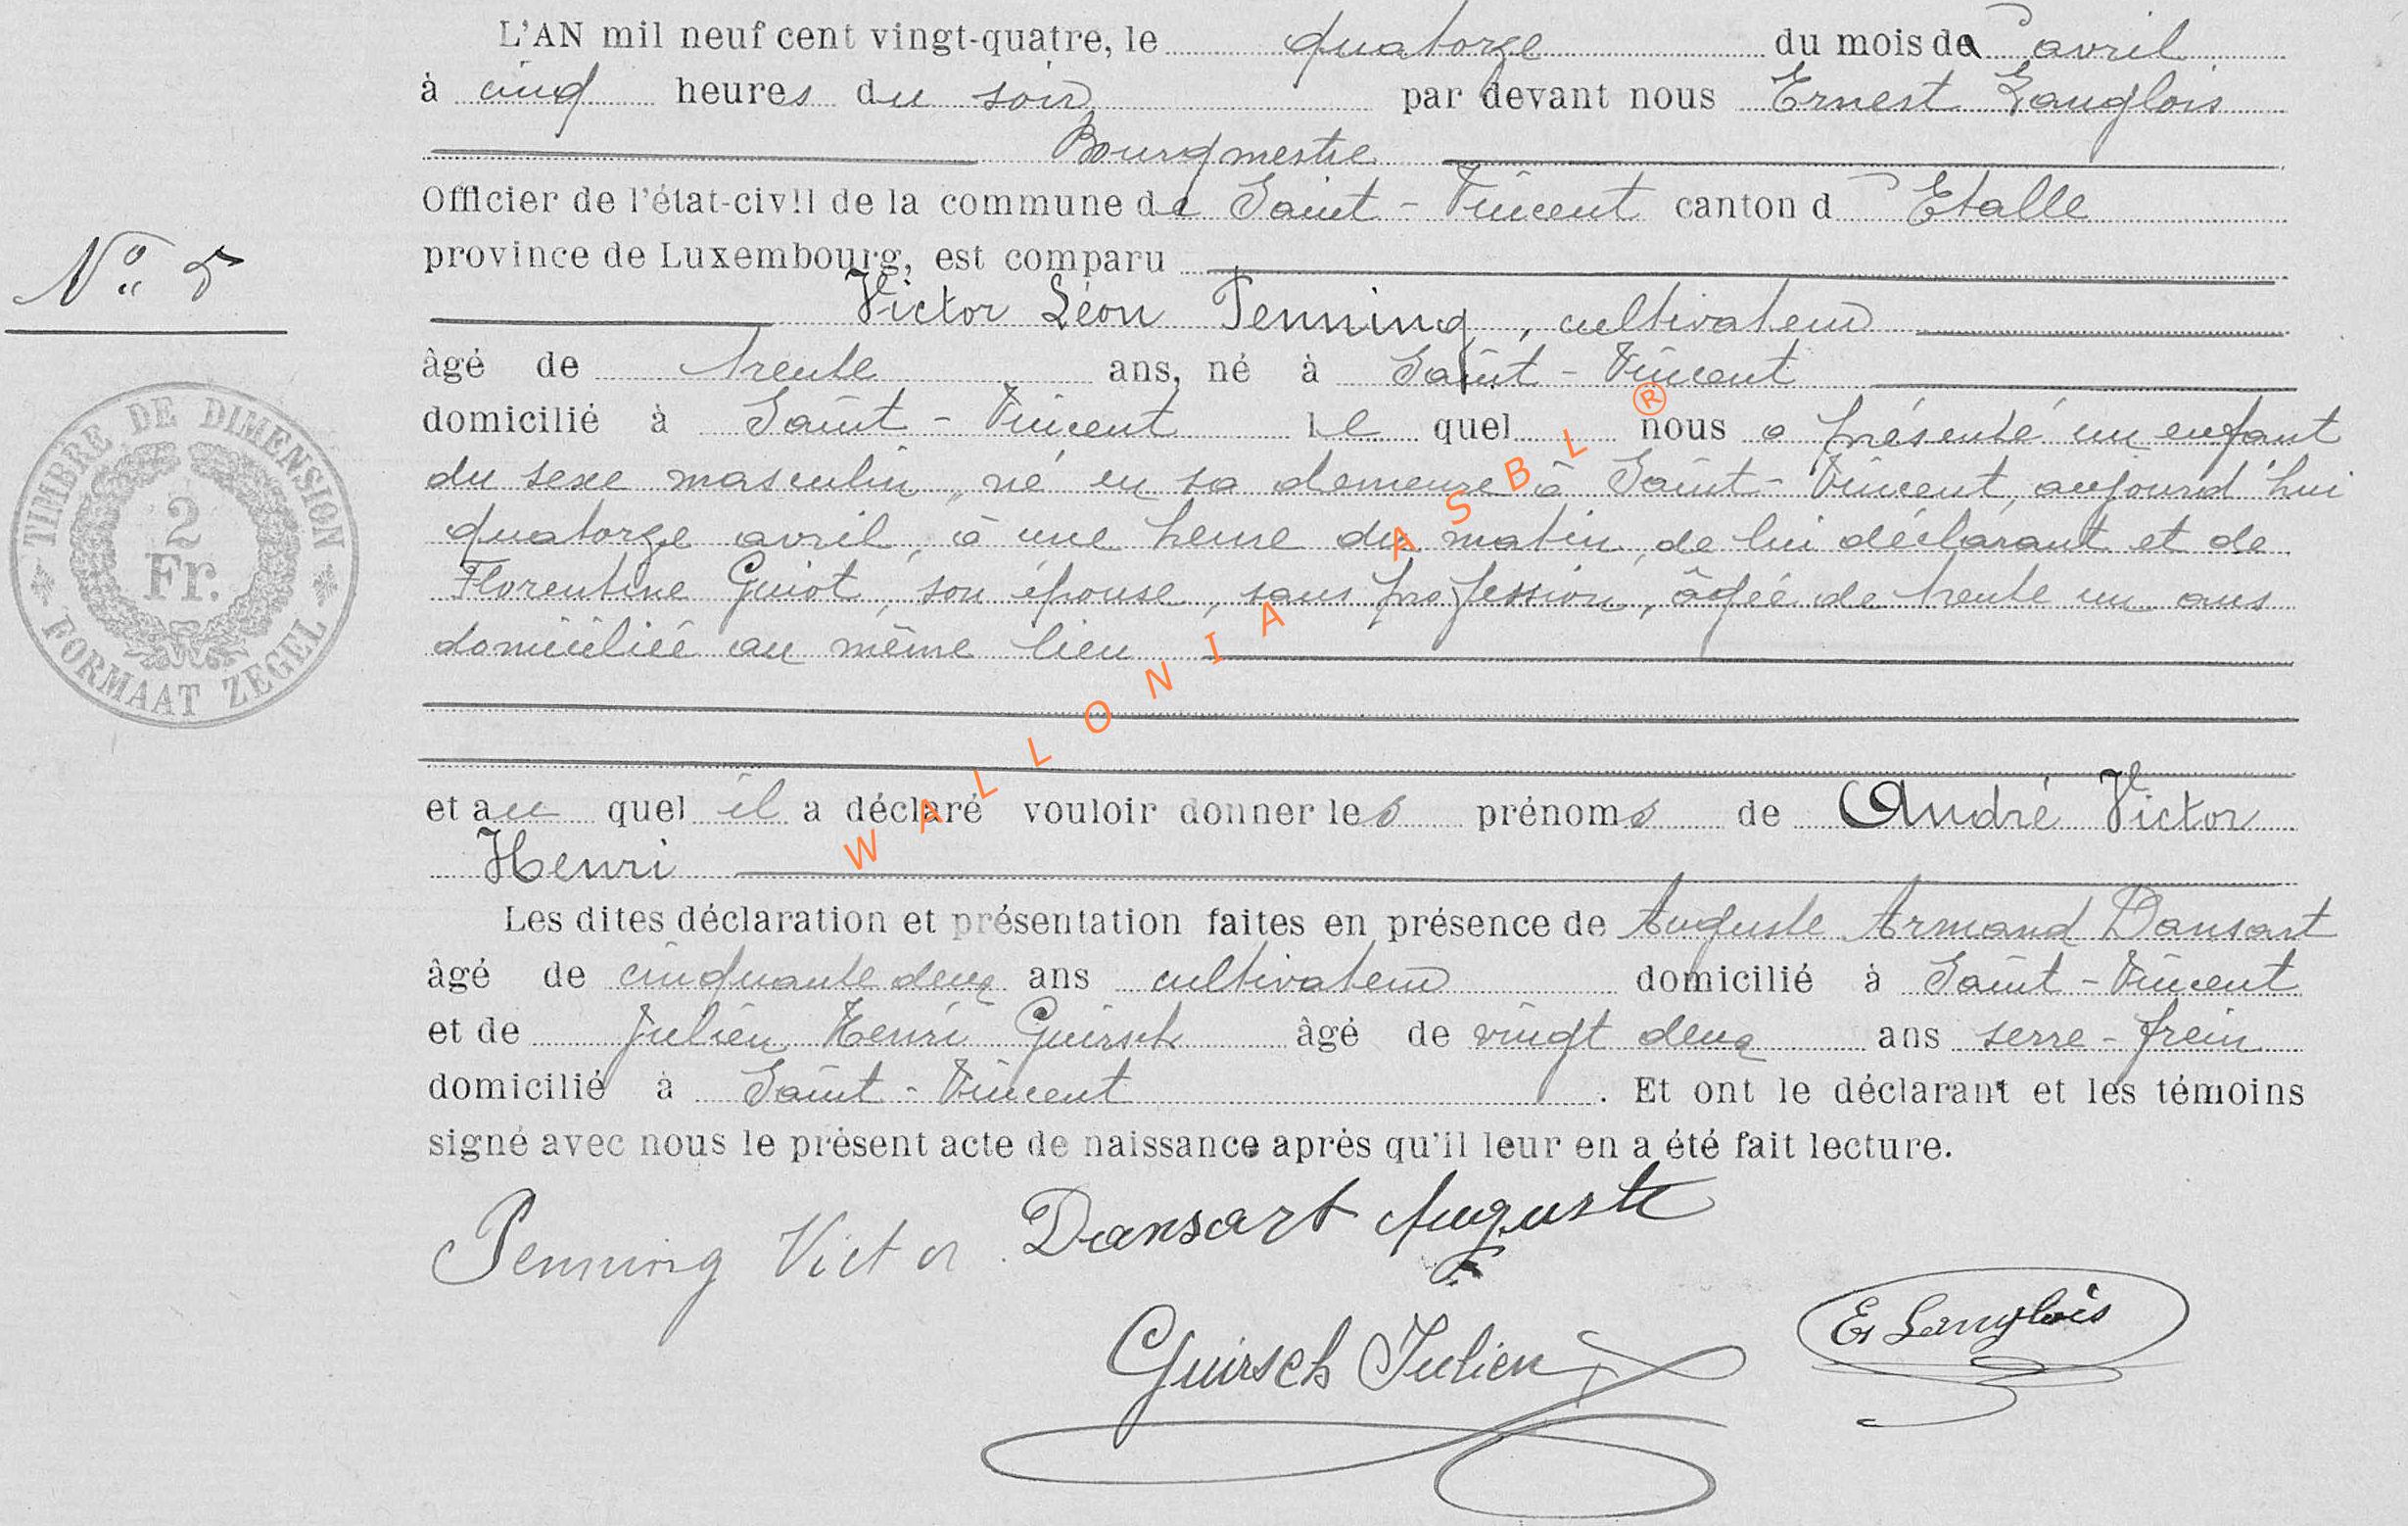 L'AN mil neuf cent vingt-quatre, le quatorze du mois de avril
à cinq heures du soir par devant nous Ernest Langlois
Bourgmestre
Officier de l'état-civil de la commune de Saint-Vincent canton d'Etalle
province de Luxembourg, est comparu
Victor Léon Penning, cultivateur
âgé de trente ans, né à Saint-Vincent
domicilié à Saint-Vincent lequel nous a présenté un enfant
du sexe masculin, né en sa demeure à Saint-Vincent, aujourd'hui
quatorze avril, à une heure du matin, de lui déclarant et de
Florentine Guiot, son épouse, sans profession, âgée de trente un ans
domiciliée au même lieu
et au quel il a déclaré vouloir donner les prénoms de André Victor
Henri
Les dites déclaration et présentation faites en présence de Auguste Armand Dansart
âgé de cinquante deux ans cultivateur domicilié à Saint-Vincent
et de Julien Henri Guirsch âgé de vingt deux ans serre-frein
domicilié à Saint-Vincent. Et ont le déclarant et les témoins
signé avec nous le présent acte de naissance après qu'il leur en a été fait lecture.
Penning Victor Dansart Auguste
Guirsch Julien
Es Langlois
No 5
TIMBRE DE DIMENSION
2
Fr.
FORMAAT ZEGEL
WALLONIA ASBL ®